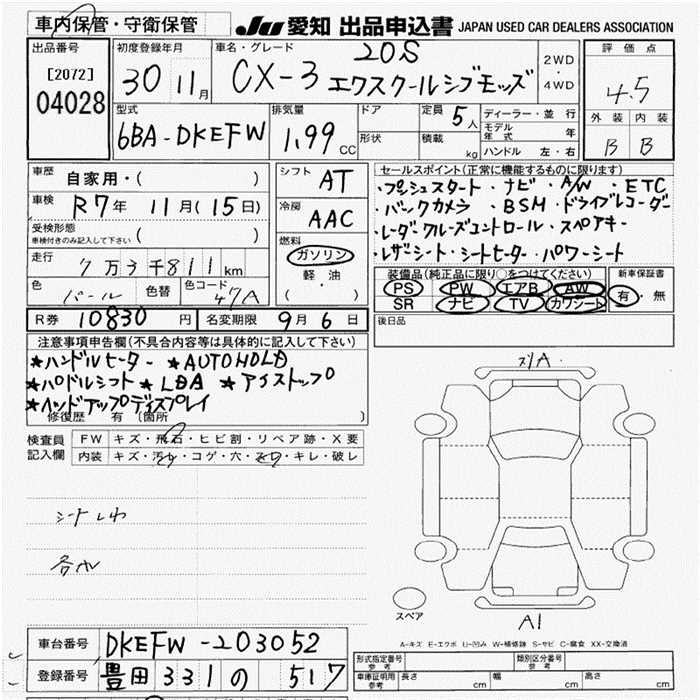 車内保管・守衛保管
JU 愛知 出品申込書 JAPAN USED CAR DEALERS ASSOCIATION
出品番号
[2072]
04028
初度登録年月
30 11月
車名・グレード
20S
CX-3 エクスクールシブモッズ
2WD
・
4WD
評価点
4.5
外装 内装
B B
型式
6BA-DKEFW
排気量
1.99 CC
ドア
形状
定員 5人
積載 kg
ディーラー・並行
モデル年式 年
ハンドル 左・右
車歴 自家用・( )
車検 R7年 11月(15日)
受検形態
車検付きのみ記入して下さい ( )
走行 7万3千811km
色 パール 色替 色コード 47A
シフト AT
冷房 AAC
燃料
ガソリン
軽・油
( )
セールスポイント(正常に機能するものに限ります)
・プッシュスタート・ナビ・A/W・ETC
・バックカメラ・BSM・ドライブレコーダー
・レーダークルーズコントロール・スペアキー
・レザーシート・シートヒーター・パワーシート
装備品(純正品に限り○をつけてください)
PS PW エアB AW
SR ナビ TV カワシート
新車保証書
有・無
R券 10830円 名変期限 9月6日
後日品
注意事項申告欄(不具合内容等は具体的に記入して下さい)
★ハンドルヒーター ★AUTOHOLD
★パドルシフト ★LDA ★アイストップ
★ヘッドアップディスプレイ
修復歴 有〔箇所 〕
検査員
記入欄
FW キズ・飛石・ヒビ割・リペア跡・X要
内装 キズ・汚れ・コゲ・穴・スレ・キレ・破レ
シートしわ
スリA
スペア
A1
A-キズ E-エクボ U-凹み W-補修跡 S-サビ C-腐食 XX-交換済
車台番号 DKEFW-203052
登録番号 豊田 331 の 517
形式指定番号
参考
類別区分番号
参考
車庫証明用
参考
長さ cm 幅 cm 高さ cm